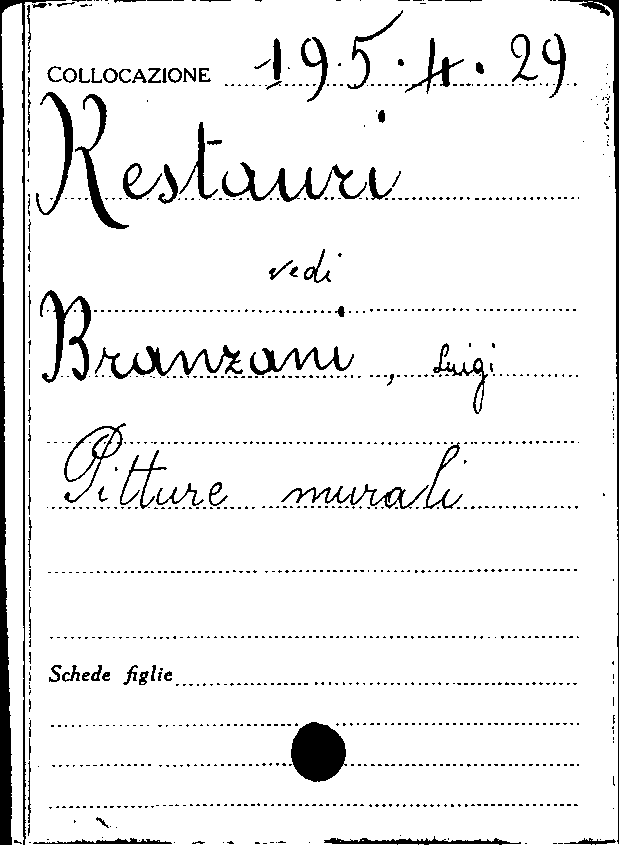 COLLOCAZIONE 195.4.29
Restauri
vedi
Branzani, Luigi
Pitture murali
Schede figlie